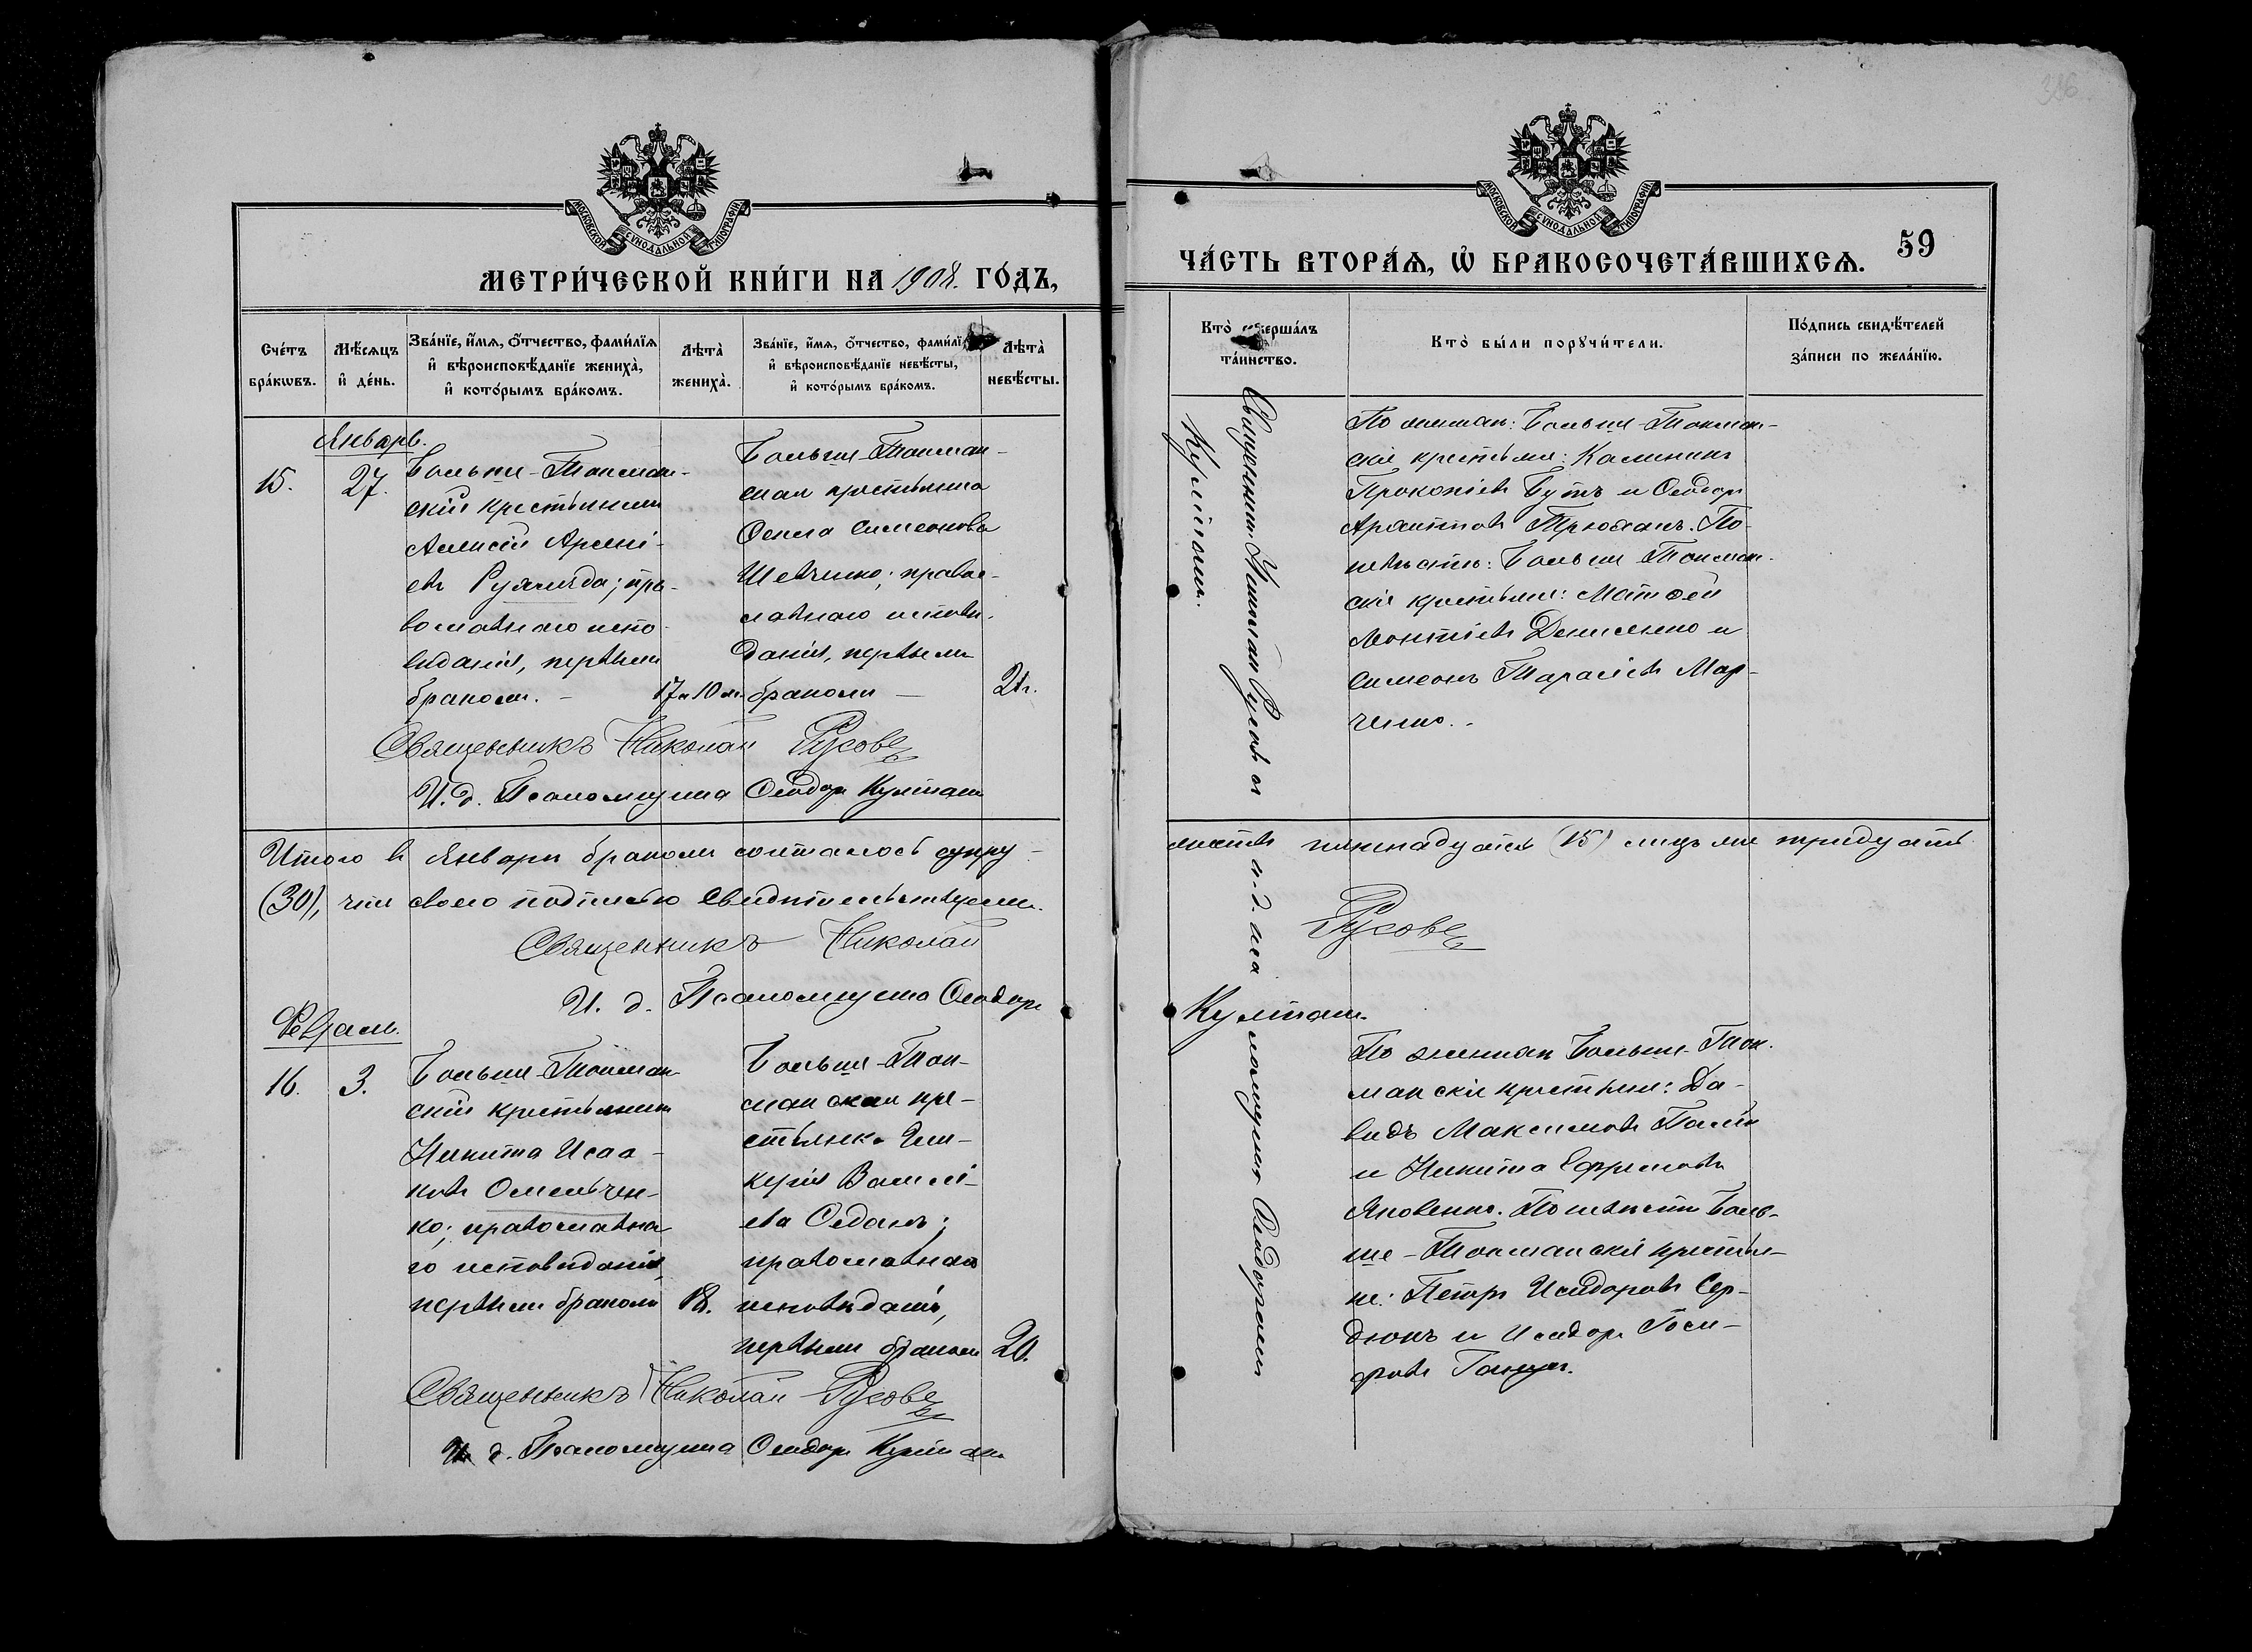 326
МОСКОВСКОЙ СѴНОДАЛЬНОЙ ТИПОГРАФІИ
МЕТРИ́ЧЕСКОЙ КНИ́ГИ НА 1908. ГО́ДЪ,
Сче́тъ бра́кωвъ.
Мѣ́сѧцъ и҆ де́нь.
Зва́нїе, и҆́мѧ, о҆́тчество, фами́лїѧ
и҆ вѣроисповѣ́данїе жениха̀,
и҆ кото́рымъ бра́комъ.
Лѣ́та̀ жениха̀.
Зва́нїе, и҆́мѧ, о҆́тчество, фами́лїѧ
и҆ вѣроисповѣ́данїе невѣ́сты,
и҆ кото́рымъ бра́комъ.
Лѣ́та̀ невѣ́сты.
Январь.
15.
27.
Больше-Токмак-
скій крестьянинъ
Алексѣй Арсені-
евъ Руж; пра-
вославнаго испо-
вѣданія, первымъ
бракомъ. –
17 и 10 м.
Больше-Токмак-
ская крестьянка
Симеонова
Шевченко; правос-
лавнаго исповѣ-
данія, первымъ
бракомъ –
21 г.
Священникъ Николай Русовъ
И. д. Псаломщика Ѳеодоръ Култаш
Итого въ Январѣ бракомъ сочталось супру-
(30), чтo своею подписью свидѣтельствуемъ.
Священникъ Николай
И. д. Псаломщика Ѳеодоръ
Февраль.
16.
3.
Больше-Токмак-
скій крестьянинъ
Никита Исаа-
ковъ Омельчен-
ко; православна-
го исповѣданія,
первымъ бракомъ
18.
Больше-Ток-
макская кре-
стьянка Гли-
керія Василі-
ева Седакъ;
православнаго
исповѣданія,
первымъ бракомъ
20.
Священникъ Николай Русовъ
И. д. Псаломщика Ѳеодоръ Култаш
МОСКОВСКОЙ СѴНОДАЛЬНОЙ ТИПОГРАФІИ
ЧА́СТЬ ВТОРА́Ѧ, Ѡ҆ БРАКОСОЧЕТА́ВШИХСѦ.
59
Кто̀ соверша́лъ
та́инство.
Кто̀ бы́ли порꙋчи́тели.
По́дпись свидѣ́телей
за́писи по жела́нїю.
Священникъ Николай Русовъ съ и. д. псаломщика Ѳеодоромъ
По женихѣ: Больше-Токмак-
скіе крестьяне: Калинникъ
Прокопіевъ Бутъ и Ѳеодоръ
. По
невѣстѣ: Больше Токмак-
скіе крестьяне: Матѳей
Леонтіевъ Денисенко и
Симеонъ Тарасіевъ Мар-
ченко. -
жествъ пятнадцать (15) лицъ же тридцать
Русовъ
Култаш
По женихѣ Больше-Ток-
макскіе крестьяне: Да-
видъ Максимовъ Палій
и Никита Ефремовъ
Яковенко. По невѣстѣ Боль-
ше-Токмакскіе крестья-
не: Петръ Исидоровъ Сер-
дюкъ и Исидоръ Іоси-
фовъ